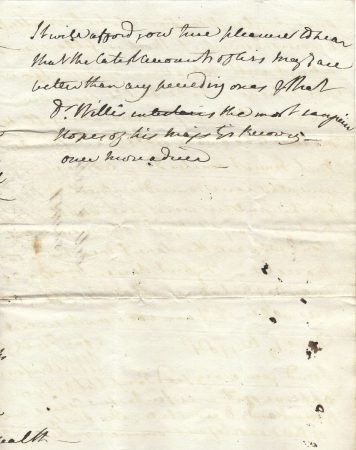 It will afford you true pleasure to hear
that the latest Accounts of his Maj: are
better than any preceding ones & that
Dr Willis entertains the most sanguine
hopes of his Maj:ys Recovery
once more adieu
ealth